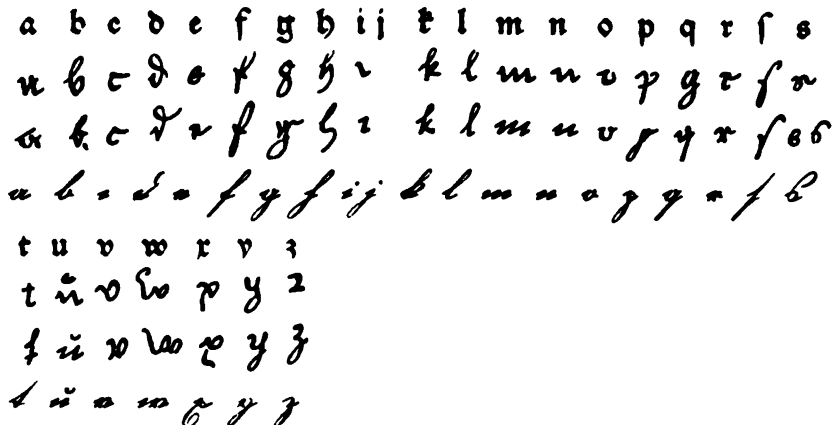 a b c d e f g h i j k l m n o p q r ſ s
a b c d e f g h i k l m n o p q r ſ s
a b c d e f g h i k l m n o p q r ſ s s
a b c d e f g h i j k l m n o p q r ſ s
t u v w x y z
t ŭ v w x y z
t ŭ v w x y z
t ŭ v w x y z